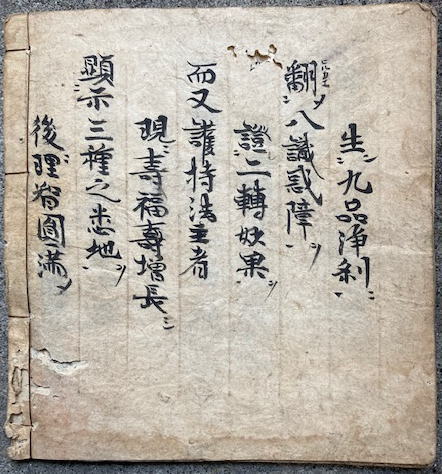 生九品浄刹
翻八識惑障
證二轉妙果
而又護持法主者
現壽福壽増長
顯示三種之悉地
後理智圓滿